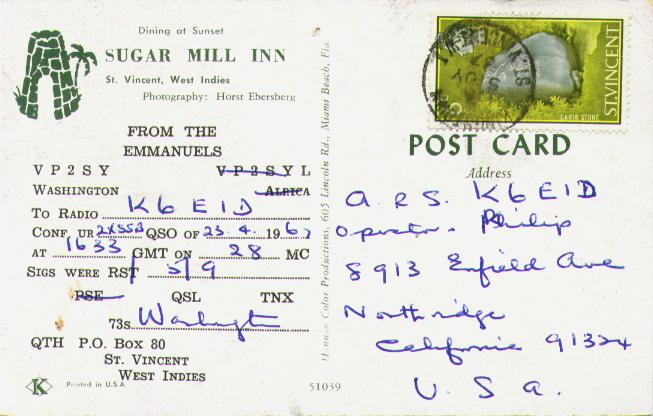 Dining at Sunset
SUGAR MILL INN
St. Vincent, West Indies
Photography: Horst Ebersberg
FROM THE
EMMANUELS
VP2SY VP2SYL
WASHINGTON ALRICA
TO RADIO K6EID
CONF. UR 2XSSB QSO OF 23. 4. 1967
AT 1633 GMT ON 28 MC
SIGS WERE RST 5/9
PSE QSL TNX
73s Washington
QTH P.O. BOX 80
ST. VINCENT
WEST INDIES
K
Printed in U.S.A
51039
Color Productions, 605 Lincoln Rd., Miami Beach, Fla.
ST.VINCENT
CARIB STONE
POST CARD
Address
A.R.S. K6EID
Operator. Philip
8913 Enfield Ave
Northridge
California 91324
U. S. A.